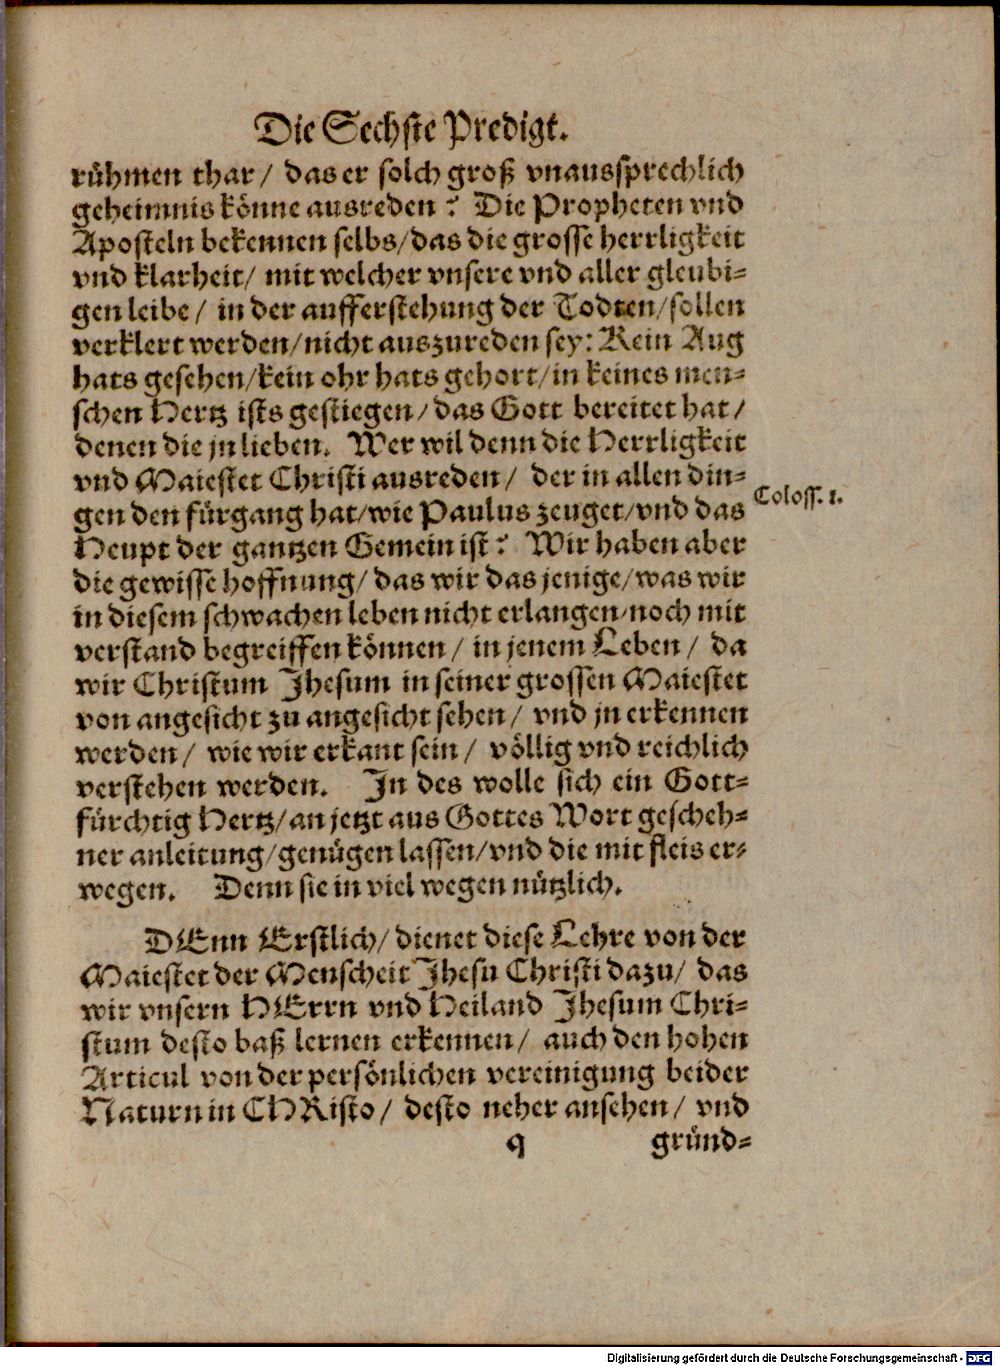 Die Sechste Predigt.
rühmen thar/ das er solch groß vnaussprechlich
geheimnis könne ausreden? Die Propheten vnd
Aposteln bekennen selbs/das die grosse herrligkeit
vnd klarheit/ mit welcher vnsere vnd aller gleubi-
gen leibe/ in der aufferstehung der Todten/sollen
verklert werden/nicht auszureden sey: Kein Aug
hats gesehen/kein ohr hats gehort/in keines men-
schen Hertz ists gestiegen/das Gott bereitet hat/
denen die jn lieben. Wer wil denn die Herrligkeit
vnd Maiestet Christi ausreden/ der in allen din-
gen den fürgang hat/wie Paulus zeuget/vnd das
Coloss. 1.
Heupt der gantzen Gemein ist? Wir haben aber
die gewisse hoffnung/das wir das jenige/was wir
in diesem schwachen leben nicht erlangen/noch mit
verstand begreiffen können/ in jenem Leben/ da
wir Christum Jhesum in seiner grossen Maiestet
von angesicht zu angesicht sehen/ vnd jn erkennen
werden/ wie wir erkant sein/ völlig vnd reichlich
verstehen werden. In des wolle sich ein Gott-
fürchtig Hertz/an jetzt aus Gottes Wort gescheh-
ner anleitung/genügen lassen/vnd die mit fleis er-
wegen. Denn sie in viel wegen nützlich.
DEnn Erstlich/ dienet diese Lehre von der
Maiestet der Menscheit Jhesu Christi dazu/ das
wir vnsern HErrn vnd Heiland Jhesum Chri-
stum desto baß lernen erkennen/ auch den hohen
Articul von der persönlichen vereinigung beider
Naturn in CHRisto/ desto neher ansehen/ vnd
q gründ-
Digitalisierung gefördert durch die Deutsche Forschungsgemeinschaft - DFG